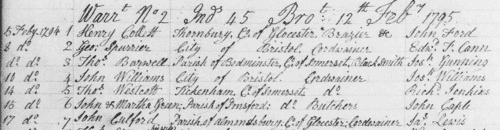 Warrt. No 2 Ind 45 Brot. 12th Feby 1795
5 Feby. 1794 1 Henry Collett Thornbury, C. of Glocester Brazier &c John Ford
8 do 2 Geo. Spurrier City of Bristol Cordwainer Edwd. T. Cann
do do 3 Thos. Barwell Parish of Bedminster, C. of Somerset, Black Smith Jos. Gunning
10 do 4 John Williams City of Bristol Cordwainer Jos. Williams
14 do 5 Thos. Westcott Tickenham, C. of Somerset, do Richd. Jenkins
15 do 6 John & Martha Green, Parish of do Butchers John Caple
17 do 7 John Parish of Almondsbury C. of Glocester Cordwainer Jas. Lewis